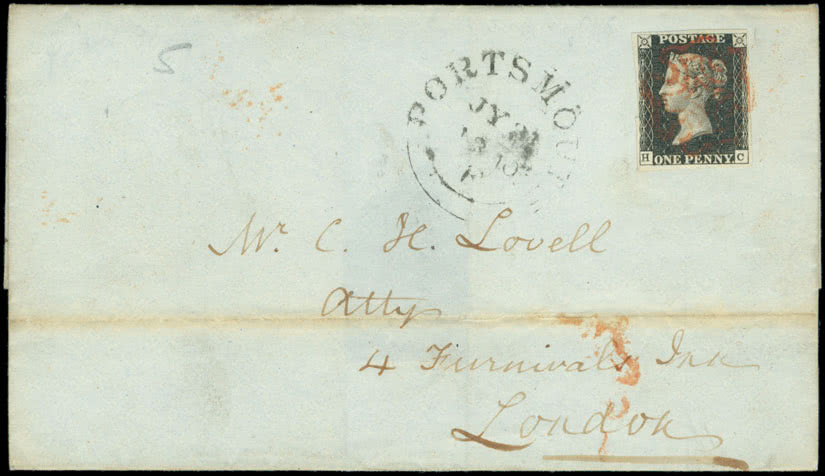 5
PORTSMOUTH
JY
POSTAGE
H C
ONE PENNY
Mr. C. H. Lovell
Atty
4 Furnivals Inn
London